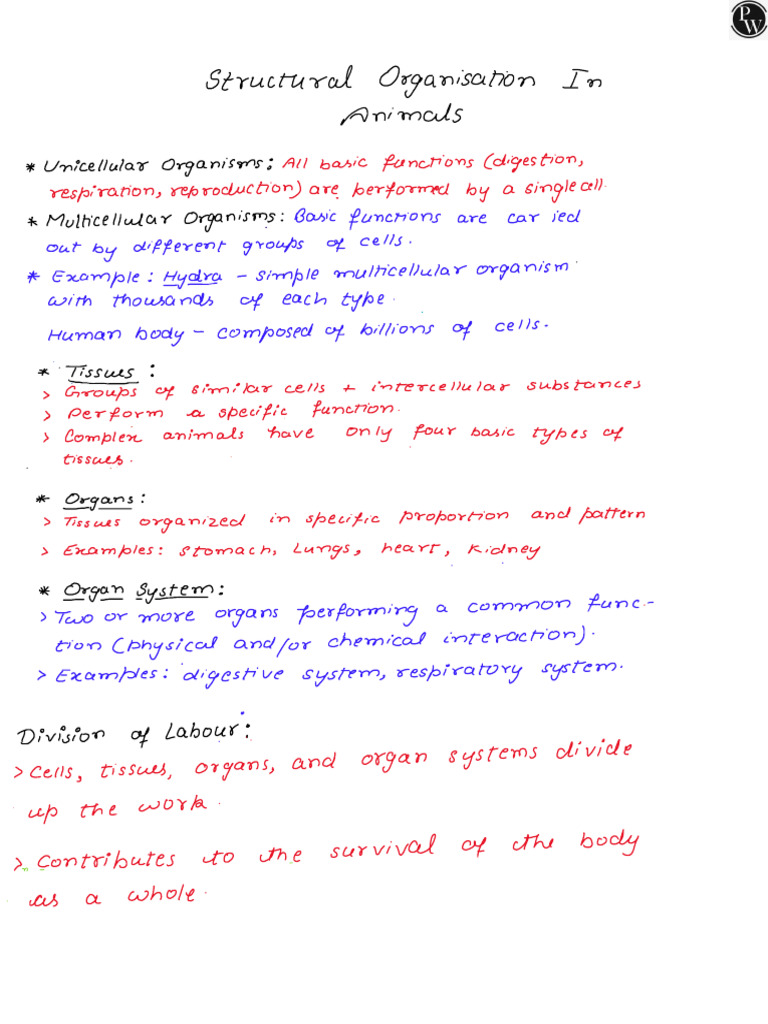 PW
Structural Organisation In
Animals
* Unicellular Organisms: All basic functions (digestion,
respiration, reproduction) are performed by a single cell.
* Multicellular Organisms: Basic functions are car ied
out by different groups of cells.
* Example: Hydra - simple multicellular organism
with thousands of each type.
Human body - composed of billions of cells.
* Tissues:
> Groups of similar cells + intercellular substances
> Perform a specific function.
> Complex animals have only four basic types of
tissues.
* Organs:
> Tissues organized in specific proportion and pattern
> Examples: stomach, Lungs, heart, kidney
* Organ System:
> Two or more organs performing a common func-
tion (physical and/or chemical interaction).
> Examples: digestive system, respiratory system.
Division of Labour:
> Cells, tissues, organs, and organ systems divide
up the work.
> Contributes to the survival of the body
as a whole.